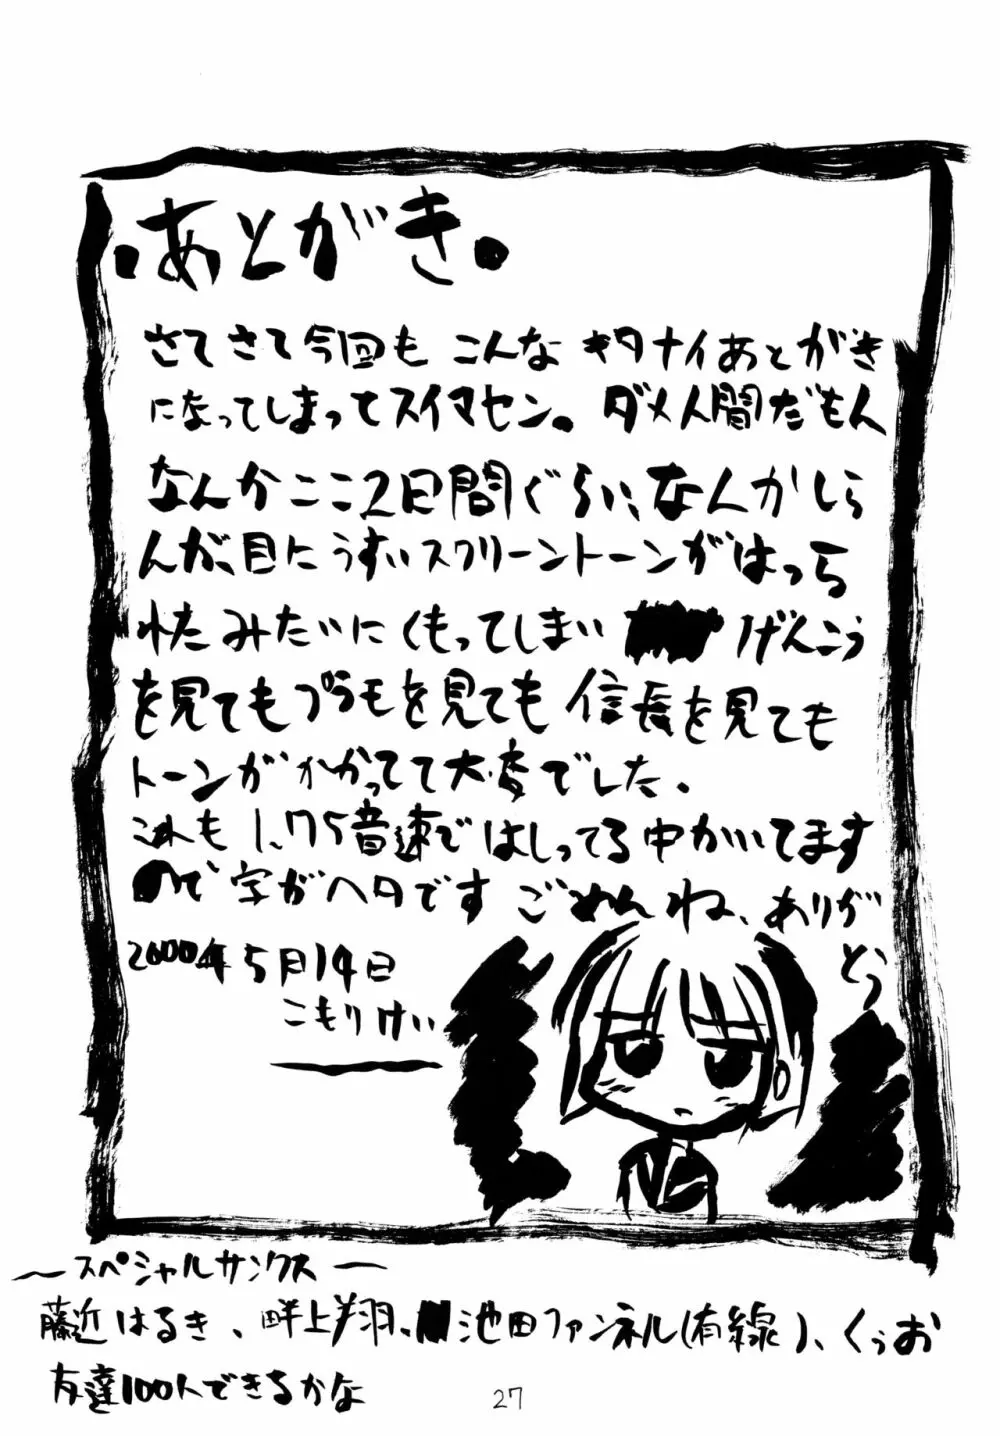 ・あとがき。
さてさて今回も こんな キタナイあとがき
になってしまってスイマセン。ダメ人間だもん
なんかここ2日間ぐらい、なんかしら
んが、目にうすいスクリーントーンがはっら
れたみたいにくもってしまい げんこう
を見てもプラモを見ても 信長を見ても
トーンがかかってて大変でした。
これも 1.75音速ではしってる中かいてます
ので 字がヘタです ごめんね、ありが
とう
2000年5月14日
こもりけい
〜スペシャルサンクス〜
藤近はるき、畔上翔、池田ファンネル(有線)、くぅお
友達100人できるかな
27